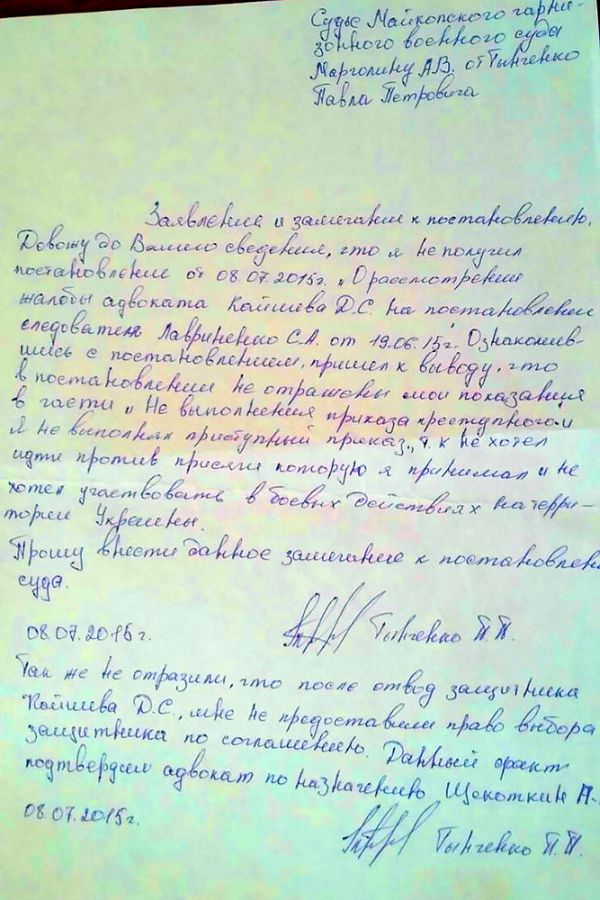 Судье Майкопского гарни-
зонного военного суда
Марголину А.В. от Тынченко
Павла Петровича
Заявление и замечание к постановлению.
Довожу до Вашего сведения, что я не получил
постановление от 08.07.2015г. „О рассмотрении
жалобы адвоката Кайшева Д.С. на постановление
следователя Лавриненко С.А. от 19.06.15г." Ознакомив-
шись с постановлением, пришел к выводу, что
в постановлении не отражены мои показания
в части „Не выполнения приказа преступного. и
Я не выполнял приступный приказ„, т.к не хотел
идти против присяги которую я принимал и не
хотел участвовать в боевых действиях на терри-
тории Украины.
Прошу внести данное замечание к постановлен
суда.
08.07.2015г. Тынченко П.П.
Так же не отразили, что после отвод защитника
Кайшева Д.С., мне не предоставили право выбора
защитника по соглашению. Данный факт
подтвердил адвокат по назначению Щекоткин А.
08.07.2015г.
Тынченко П.П.